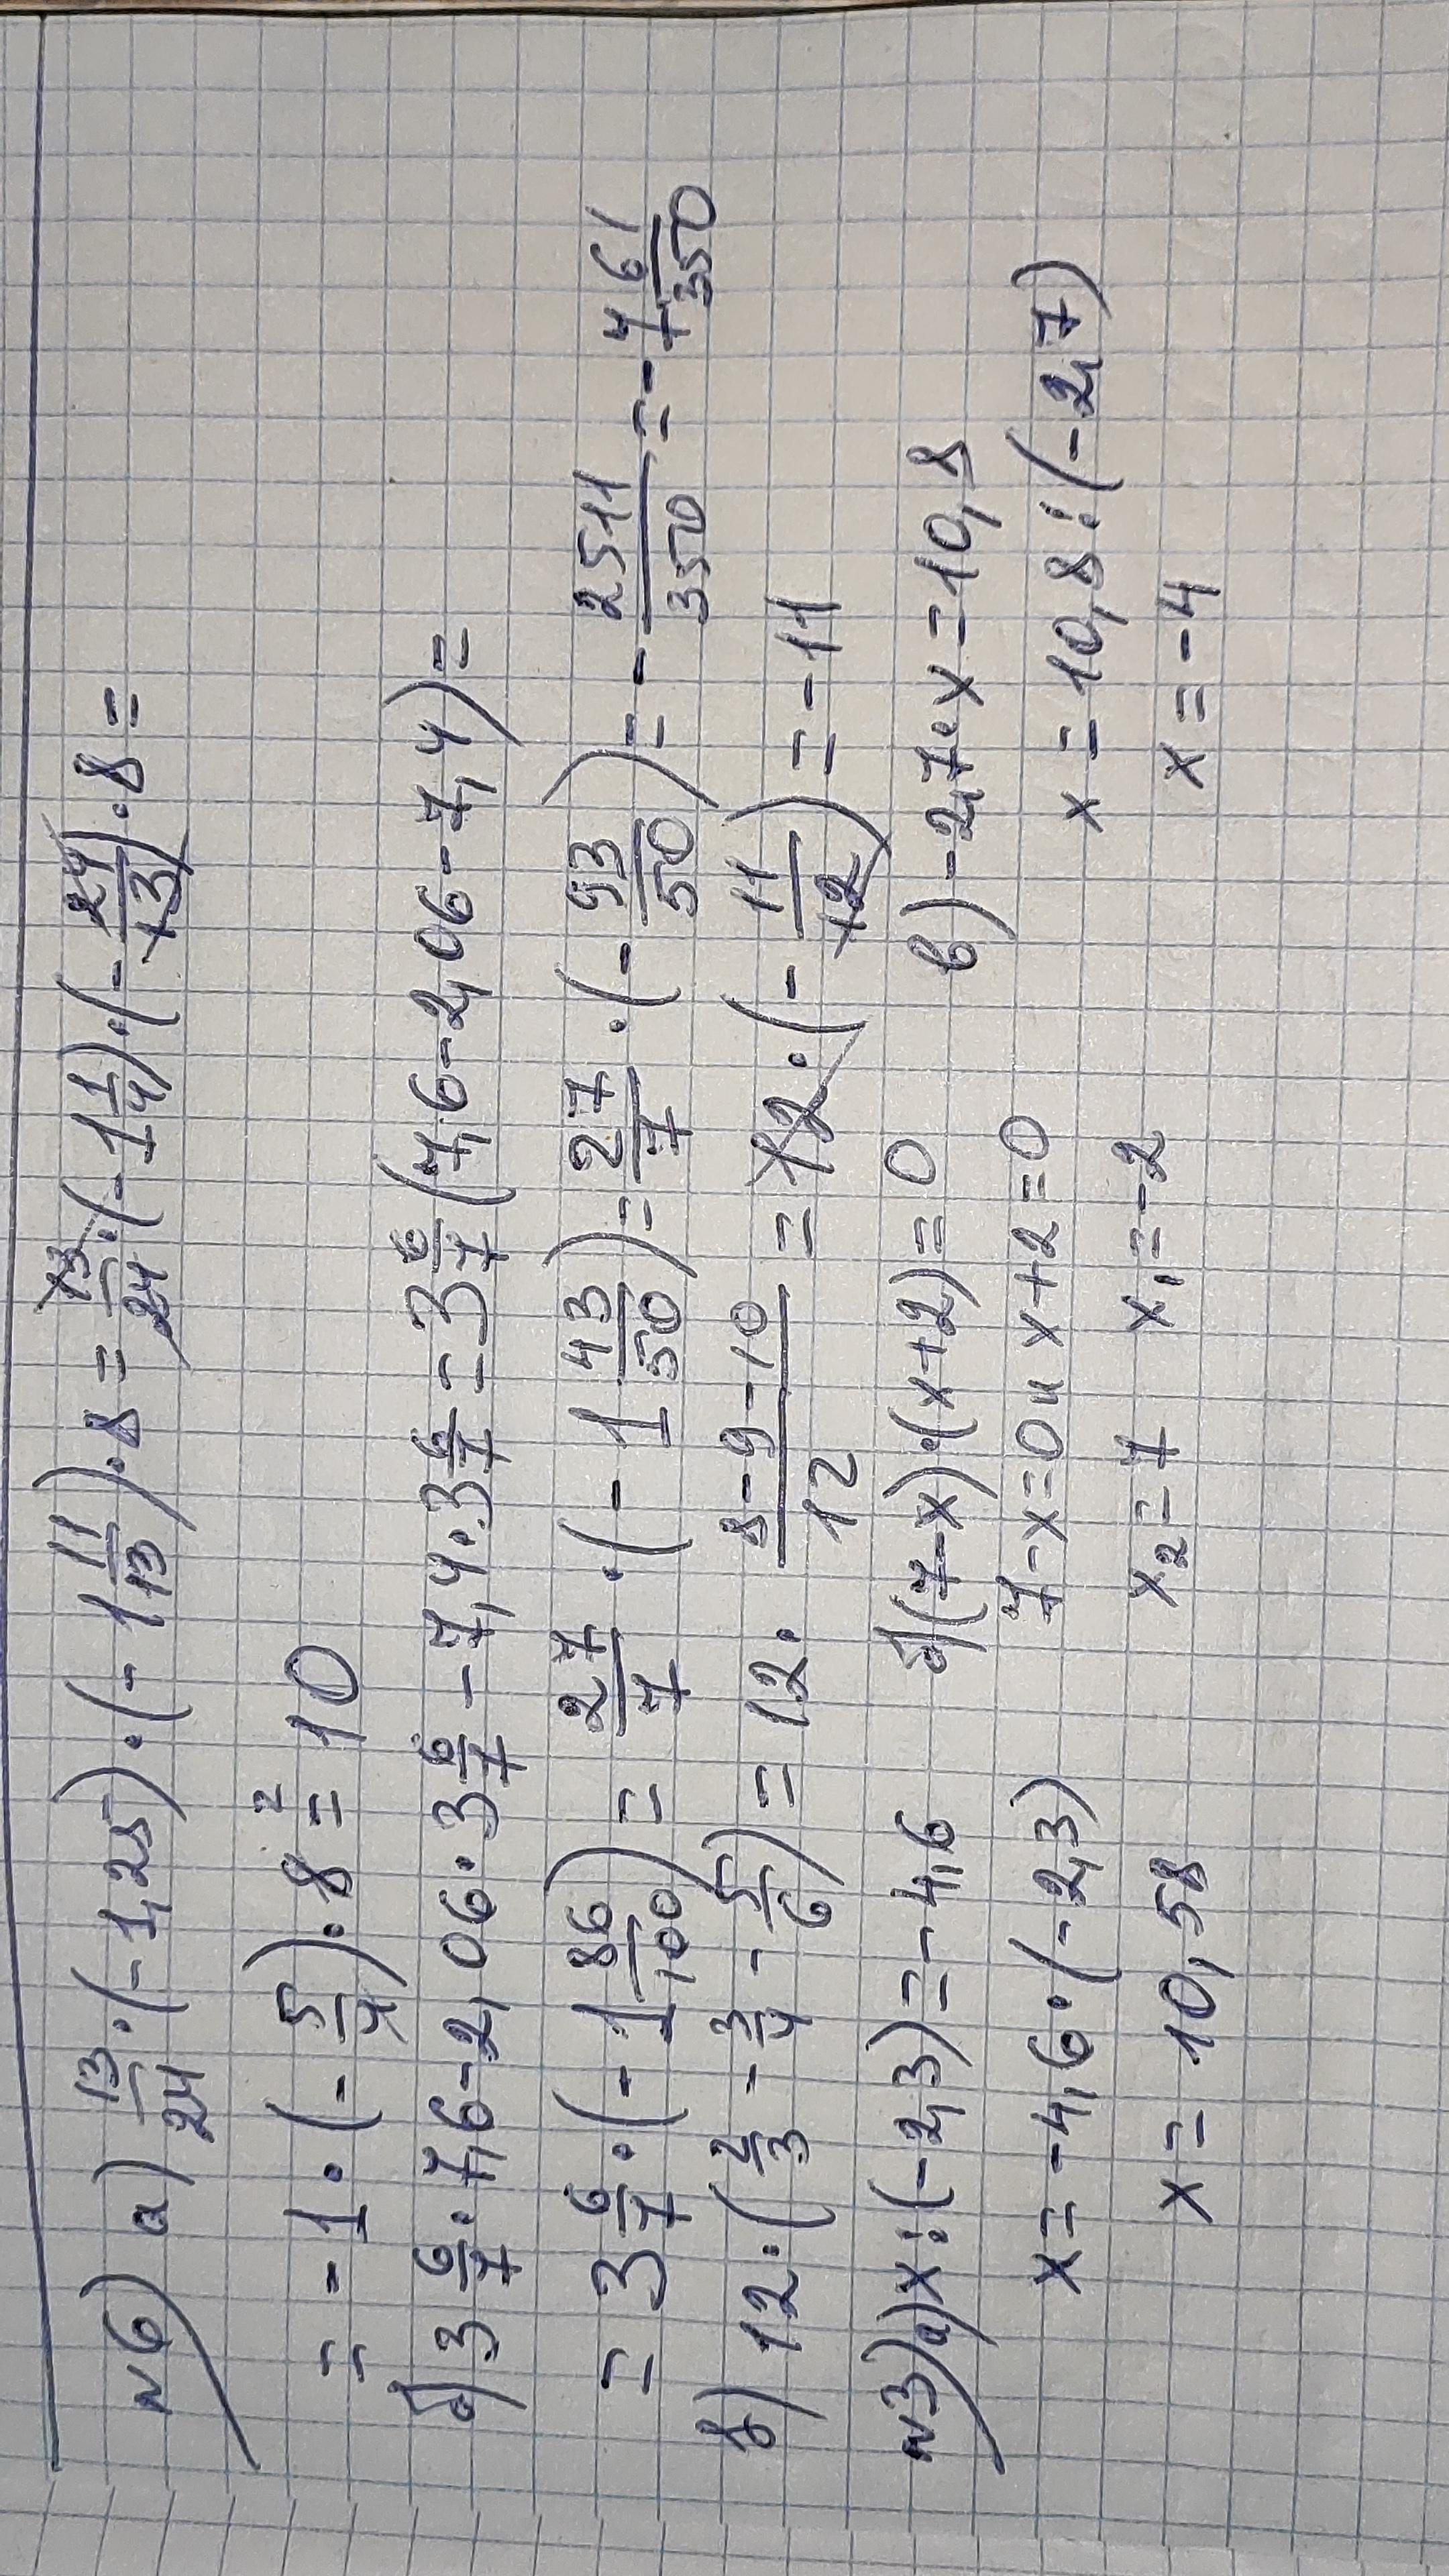 N6) а) 13/24 · (-1,25) · (-1 11/13) · 8 = 13/24 · (-1 1/4) · (-24/13) · 8 =
= -1 · (-5/4) · 8 ² = 10
б) 3 6/7 · 7,6 - 2,06 · 3 6/7 - 7,4 · 3 6/7 = 3 6/7 (7,6 - 2,06 - 7,4) =
= 3 6/7 · (-1 86/100) = 27/7 · (-1 43/50) = 27/7 · (-93/50) = - 2511/350 = -7 61/350
в) 12 · (2/3 - 3/4 - 5/6) = 12 · 8-9-10/12 = 12 · (-11/12) = -11
N3) а) x : (-2,3) = -4,6 б) (7-x) · (x+2) = 0 в) -2,7 · x = 10,8
x = -4,6 · (-2,3) 7-x=0 и x+2=0 x = 10,8 : (-2,7)
x = 10,58 x₂ = 7 x₁ = -2 x = -4